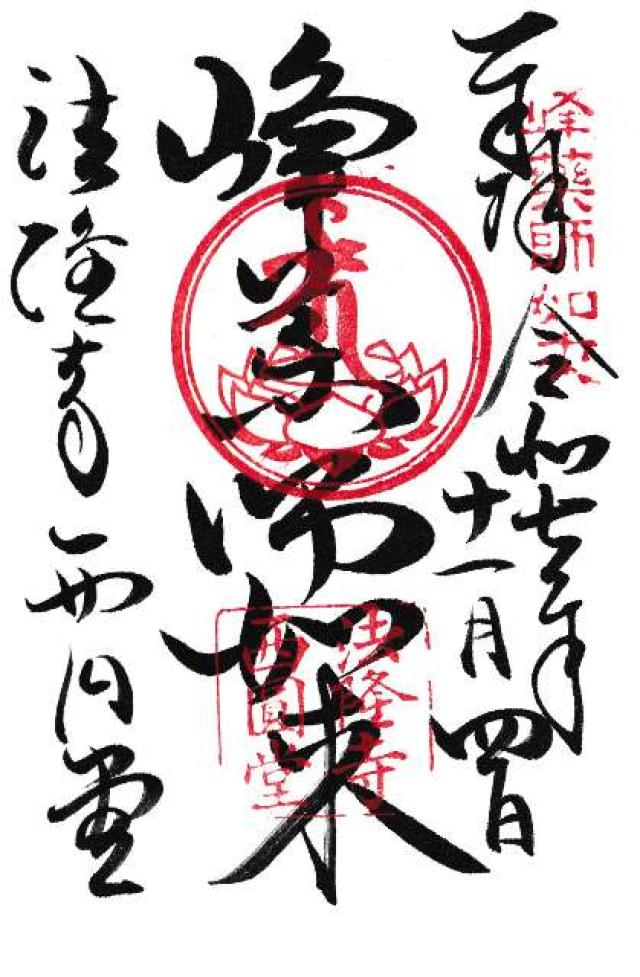 奉拝
令和七年
十一月四日
峰薬師如来
法隆寺
西円堂
峰薬師如来
法隆寺
西圓堂